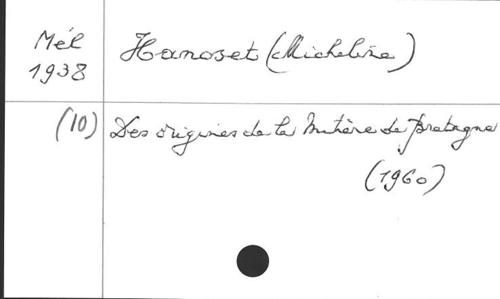 Mél
1938
Hanoset (Micheline)
(10) Des origines de la Matière de Bretagne
(1960)